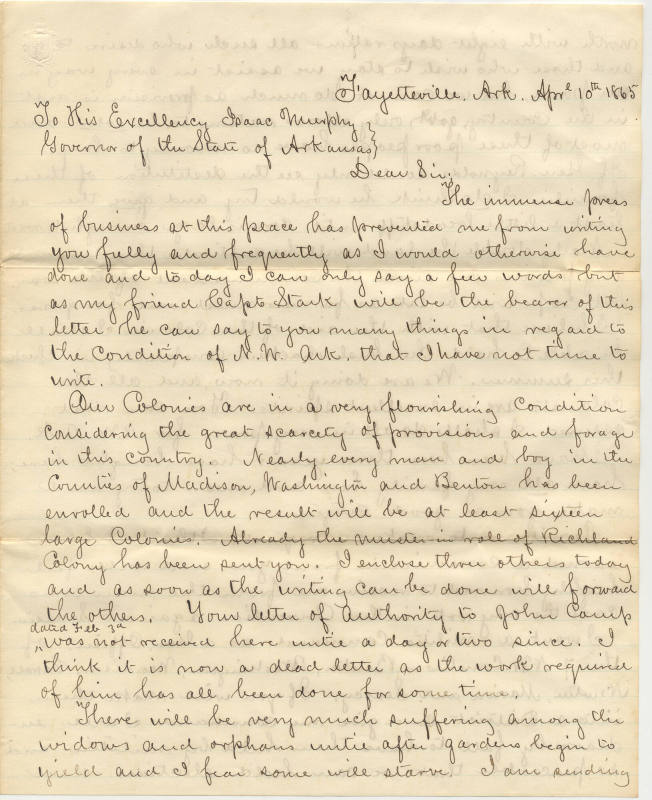 Fayetteville, Ark. Aprl 10th 1865
To His Excellency Isaac Murphy
Governor of the State of Arkansas}
Dear Sir,
The immense press
of business at this place has prevented me from writing
you fully and frequently as I would otherwise have
done and to day I can only say a few words but
as my friend Capt Stark will be the bearer of this
letter he can say to you many things in regard to
the Condition of N.W. Ark. that I have not time to
write.
Our Colonies are in a very flourishing Condition
Considering the great scarcety of provisions and forage
in this Country. Nearly every man and boy in the
Counties of Madison, Washington and Benton has been
enrolled and the result will be at least sixteen
large Colonies. Already the muster in roll of Richland
Colony has been sent you. I enclose three others today
and as soon as the writing can be done will forward
the others. Your letter of authority to John Camp
dated Feb 3d
was not received here untie a day or two since. I
think it is now a dead letter as the work required
of him has all been done for some time.
There will be very much suffering among the
widows and orphans untie after gardens begin to
yield and I fear some will starve. I am sending